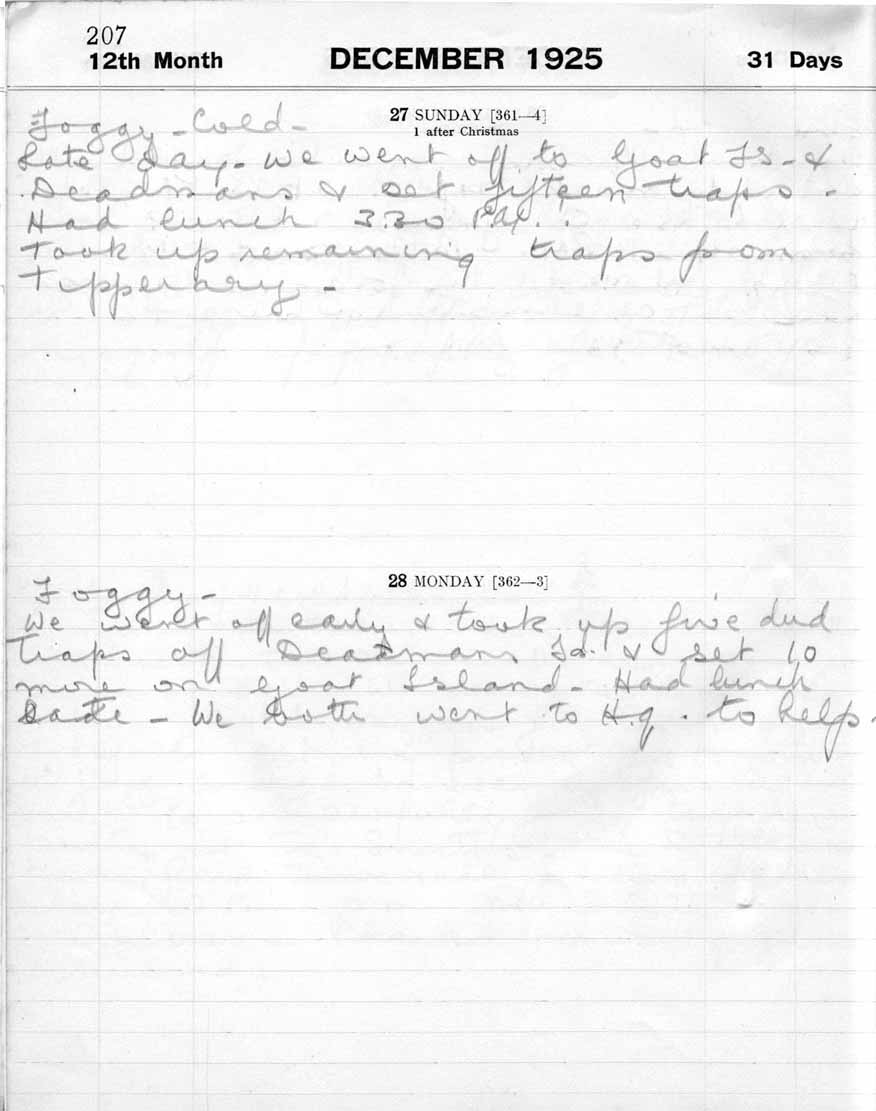 207
12th Month DECEMBER 1925 31 Days
27 SUNDAY [361—4]
1 after Christmas
Foggy - Cold -
Late day - We went off to Goat Is - &
Deadmans & set fifteen traps -
Had lunch 3.30 P.M. .
Took up remaining traps from
Tipperary -
28 MONDAY [362—3]
Foggy -
We went off early & took up five dud
traps off Deadmans Is. & set 10
more on Goat Island - Had lunch
Late - We both went to H.q. to help -